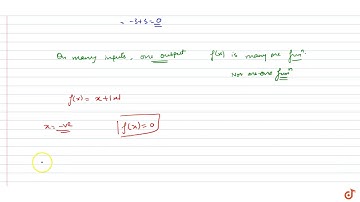 = -5+5=0
On many inputs, one output f(x) is many one funⁿ.
Not one-one funⁿ
f(x) = x+|x|
x = -ve f(x)=0